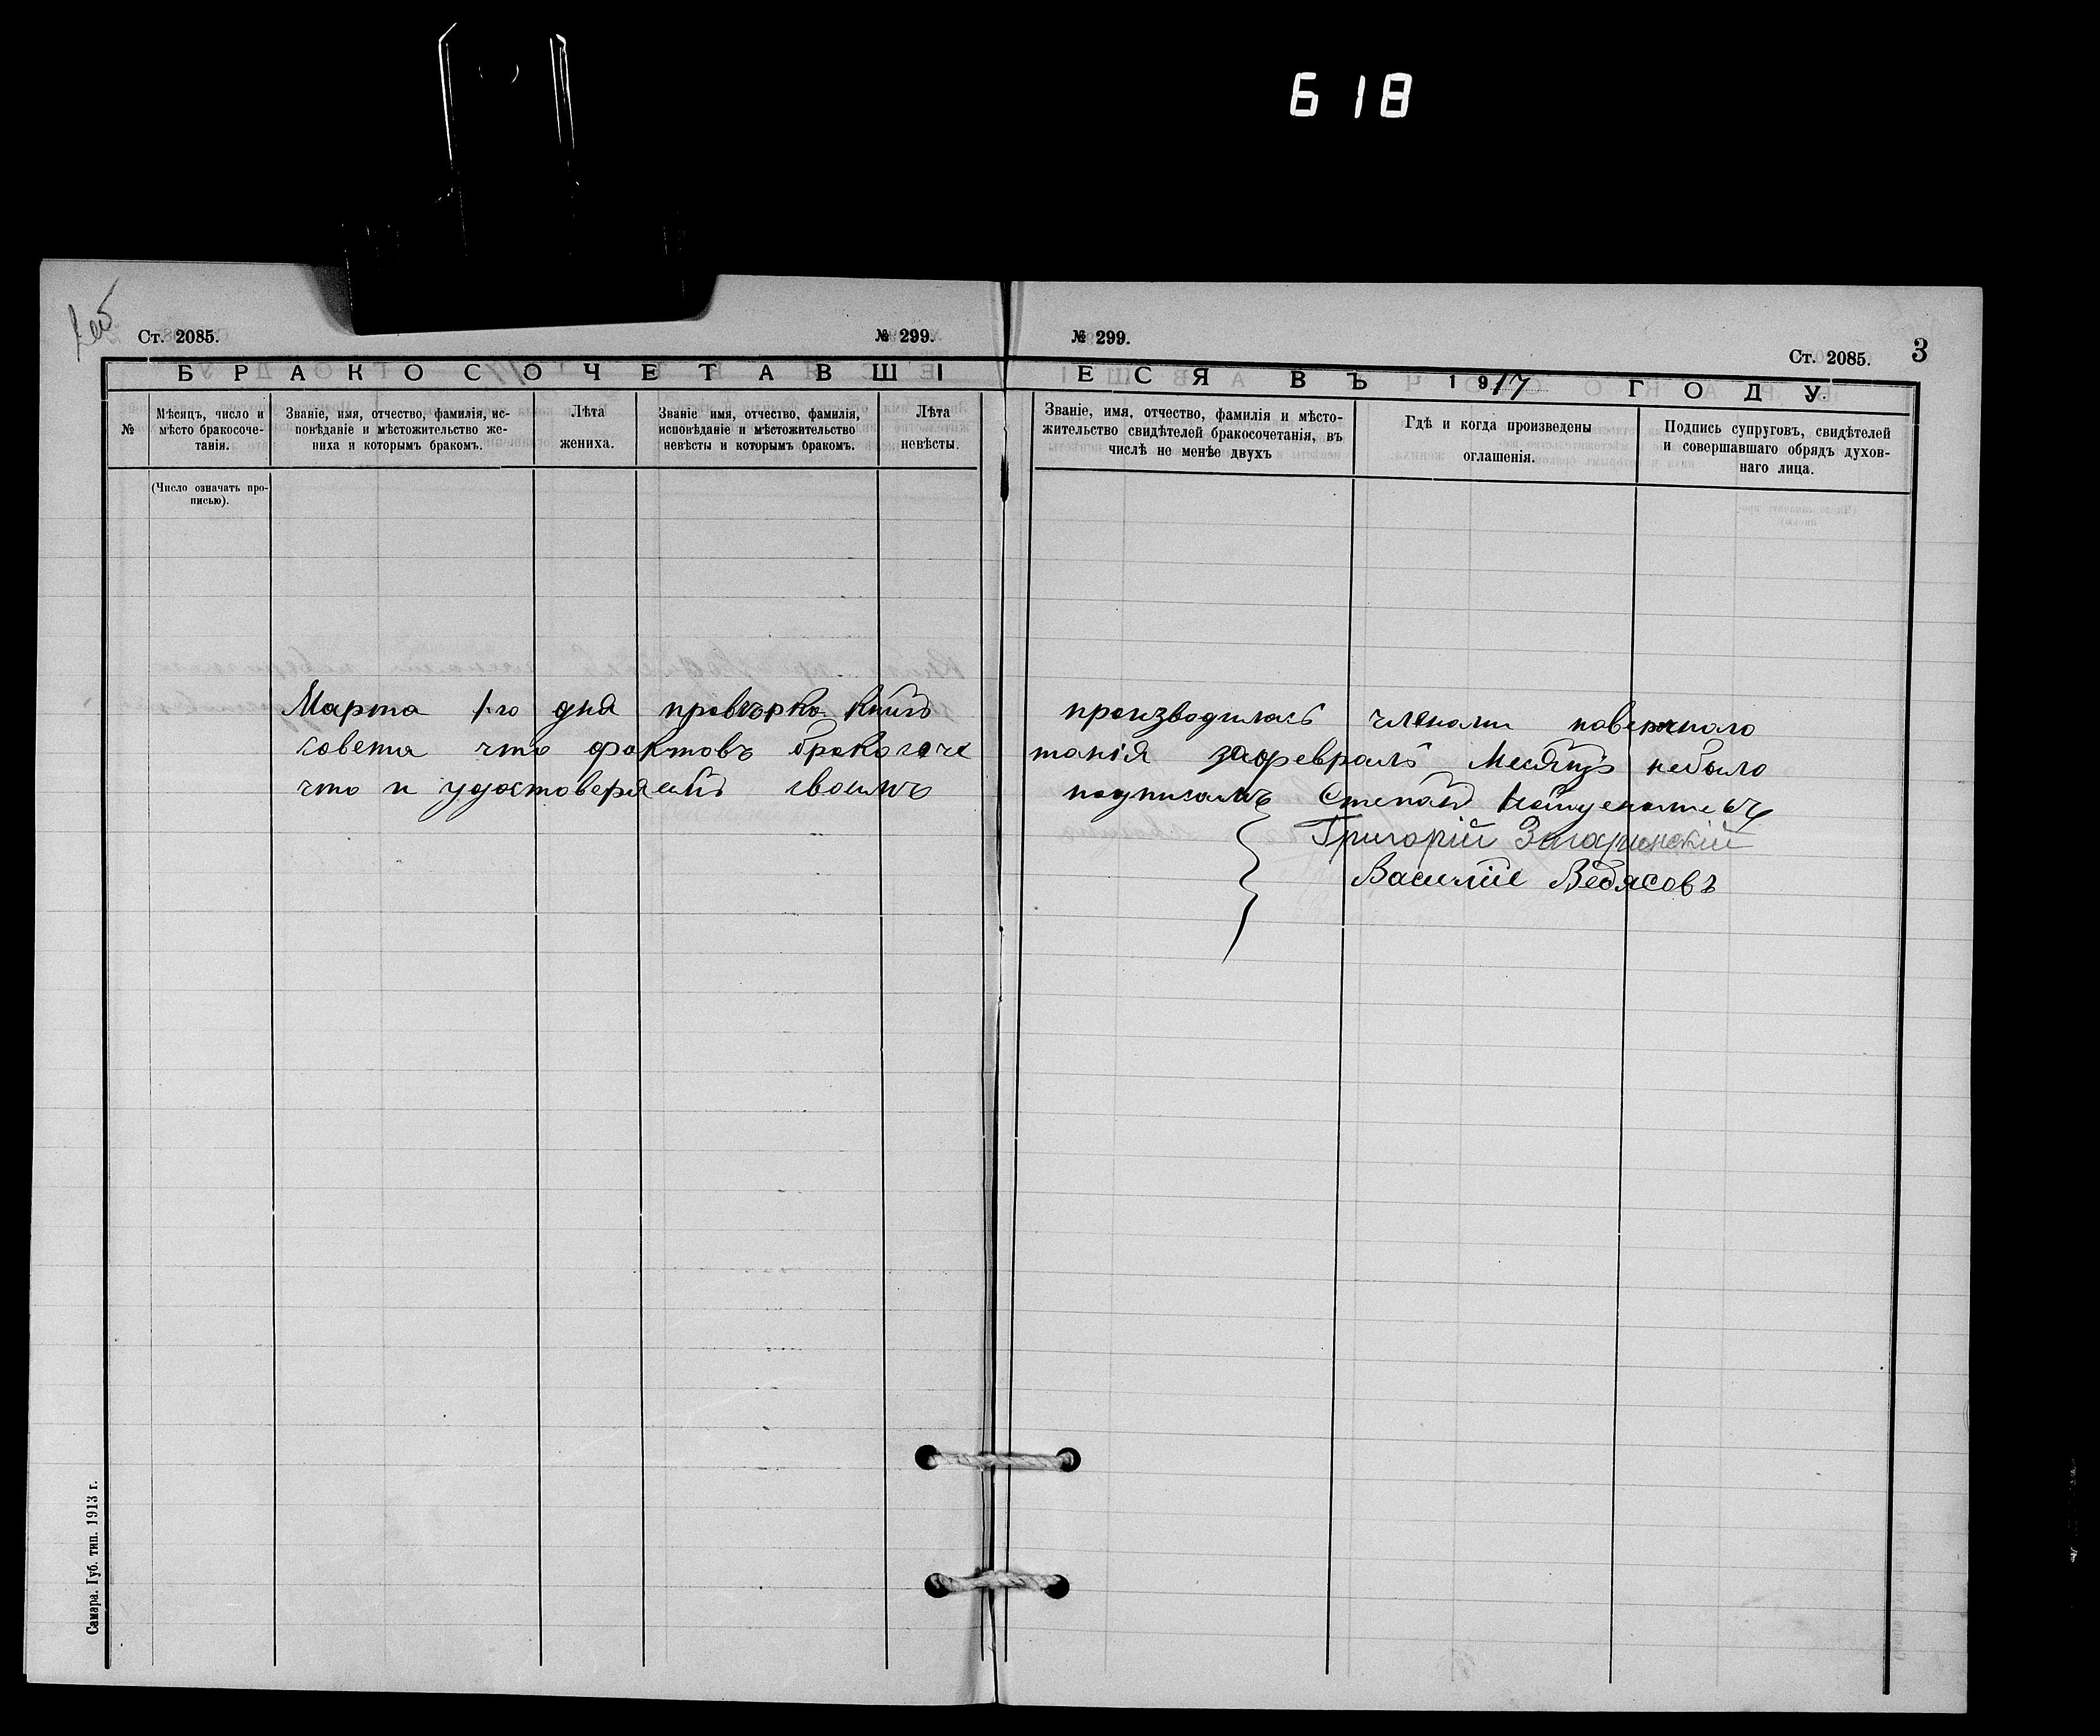 618
Ст. 2085.
№ 299.
№ 299.
Ст. 2085.
3
БРАКОСОЧЕТАВШІ
ЕСЯ ВЪ 1917 ГОДУ.
№
Мѣсяцъ, число и
мѣсто бракосоче-
танія.
(Число означать про-
писью).
Званіе, имя, отчество, фамилія, ис-
повѣданіе и мѣстожительство же-
ниха и которымъ бракомъ.
Лѣта
жениха.
Званіе имя, отчество, фамилія,
исповѣданіе и мѣстожительство
невѣсты и которымъ бракомъ.
Лѣта
невѣсты.
Званіе, имя, отчество, фамилія и мѣсто-
жительство свидѣтелей бракосочетанія, въ
числѣ не менѣе двухъ
Гдѣ и когда произведены
оглашенія.
Подпись супруговъ, свидѣтелей
и совершавшаго обрядъ духов-
наго лица.
Марта 1-го дня провѣрка книгъ производилась членами
совета что фактовъ бракосоче танія зафевраль Месяцъ небыло
что и удостоверяемъ своимъ Степанъ
Григорій
Василіе Ведясовъ
Самара. Губ. тип. 1913 г.